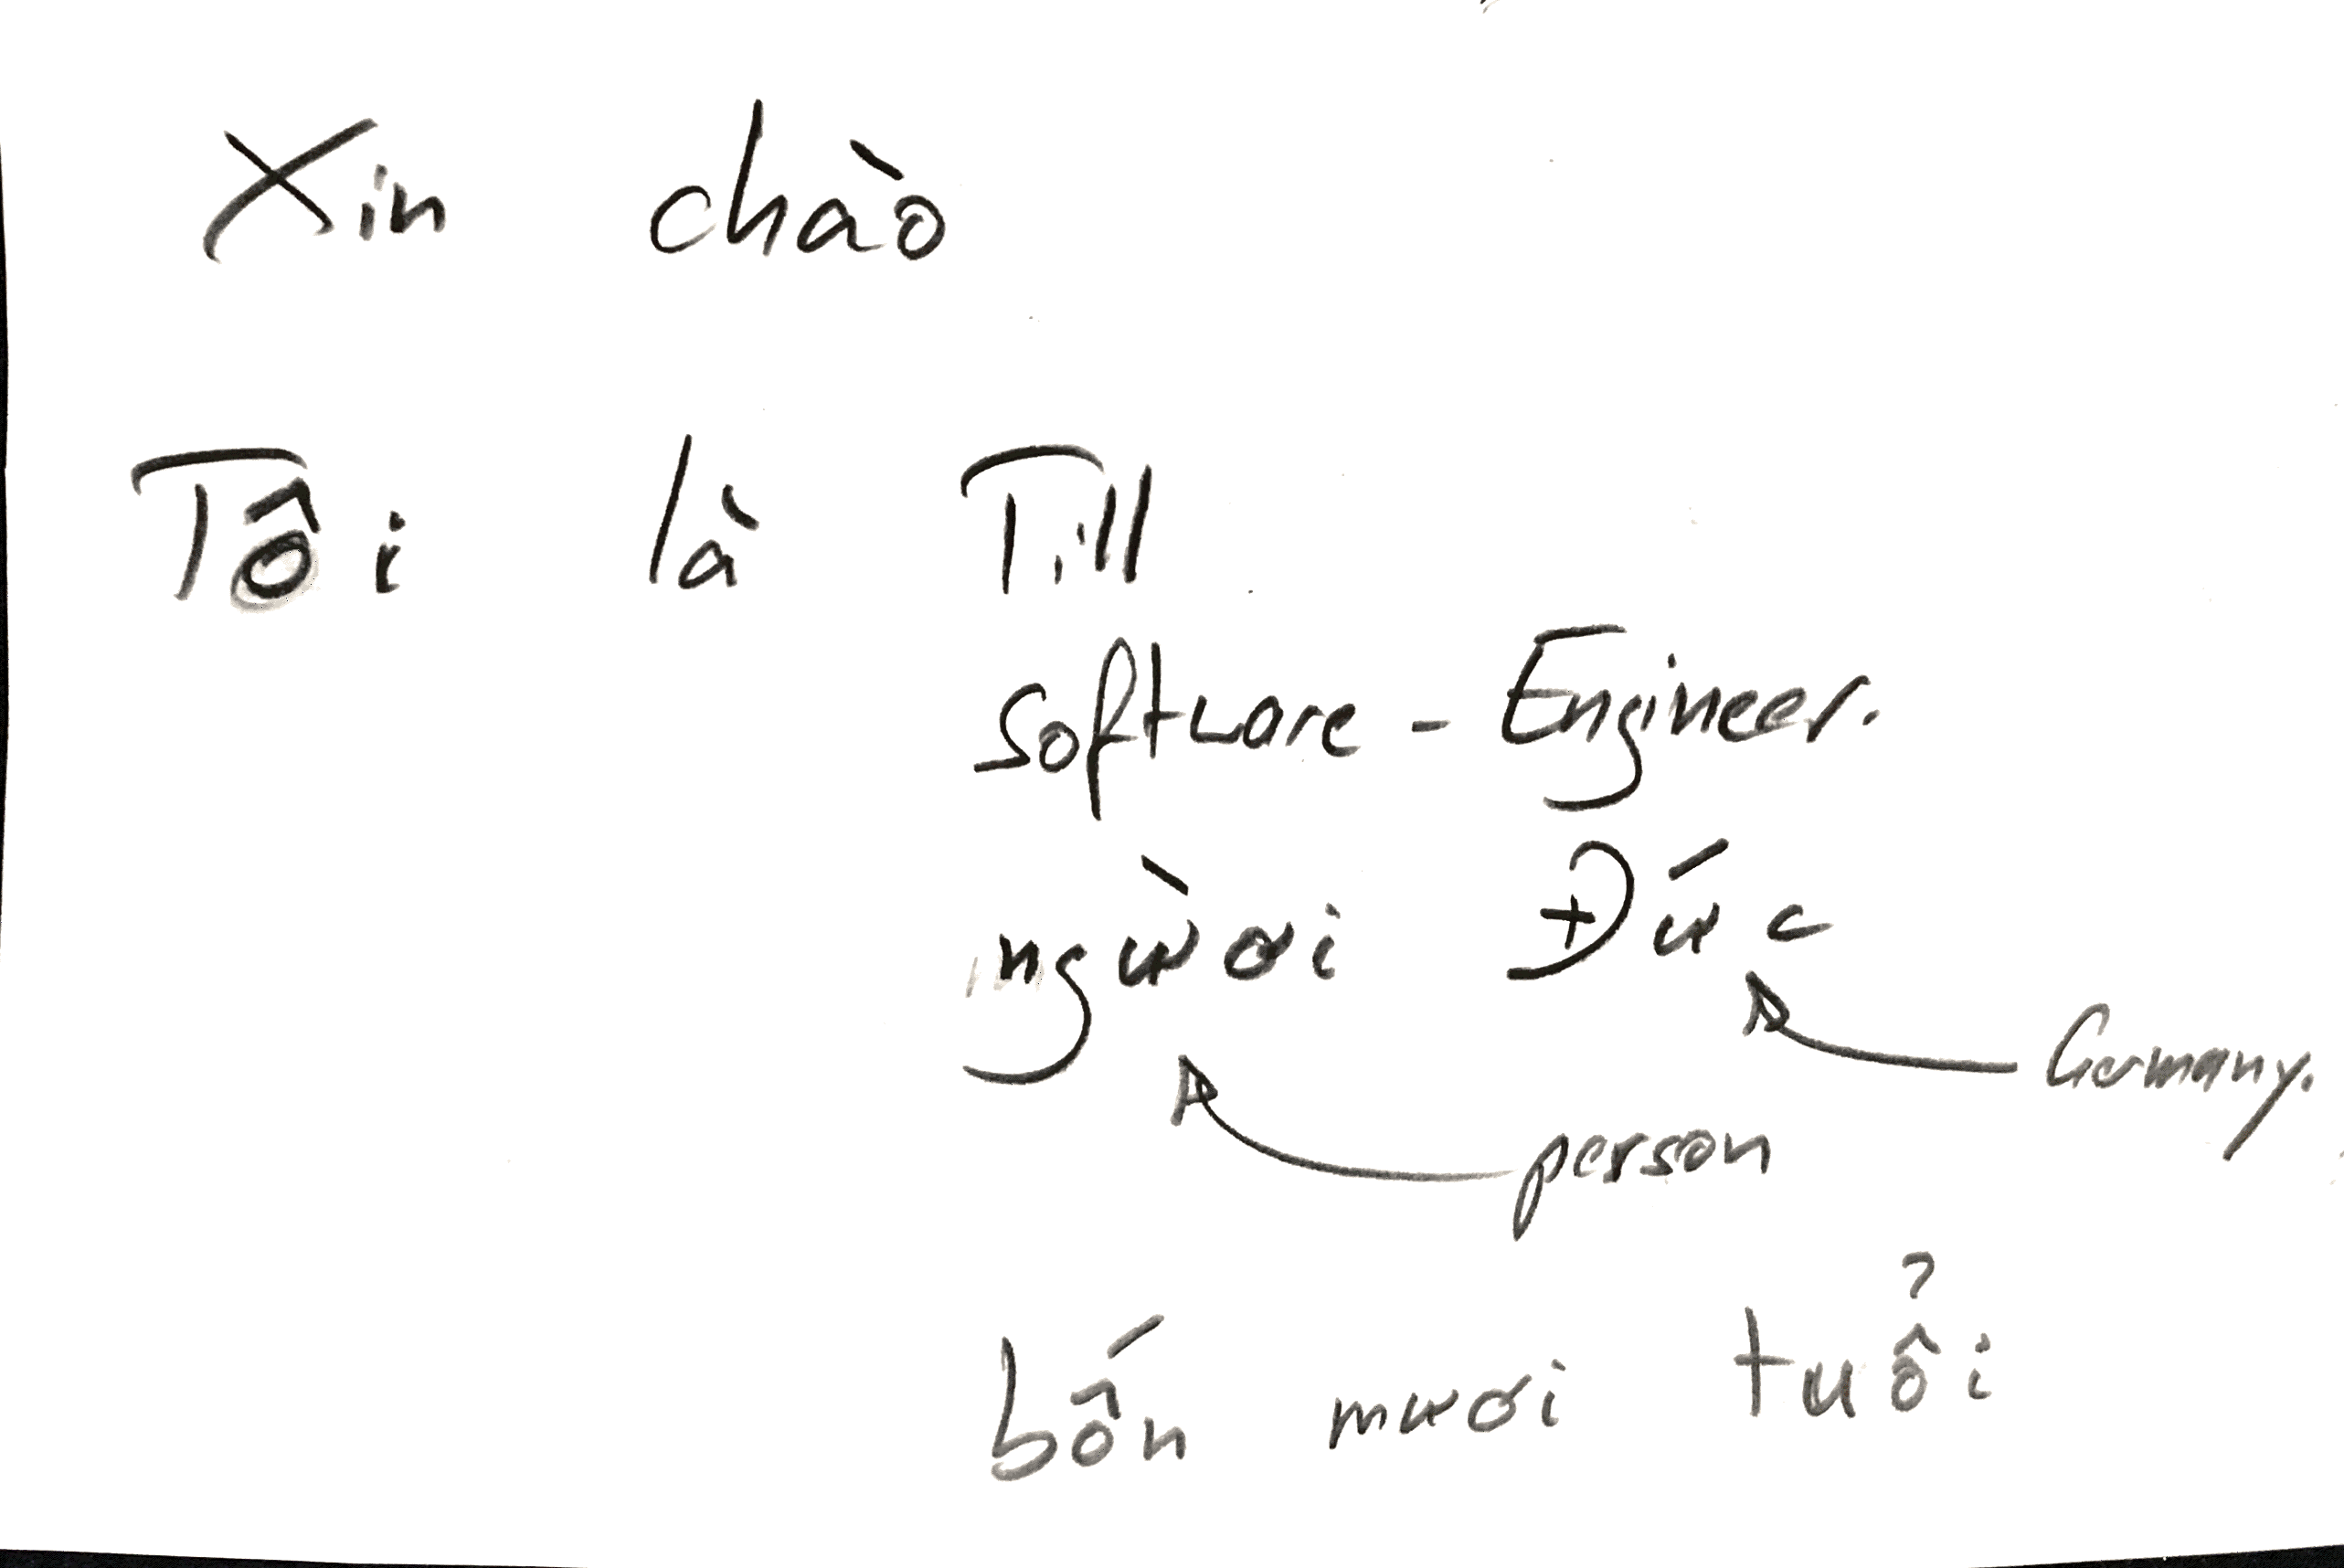 Xin chào
Tôi là Till
Software - Engineer.
người Đức
Germany.
person
bốn mươi tuổi